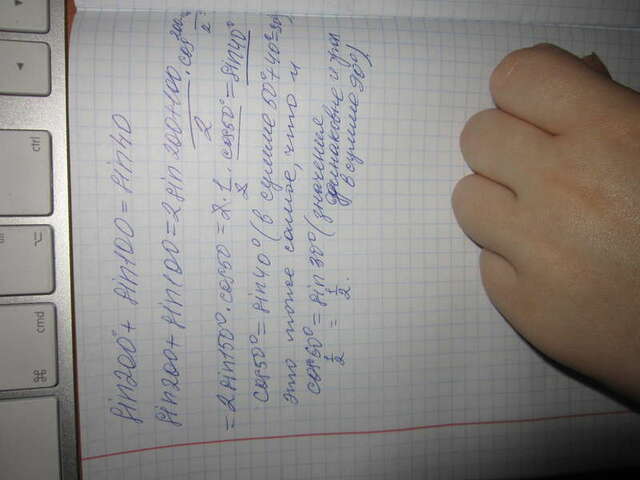 cmd
ctrl
sin200°+ sin100 = sin40
sin200 + sin100 = 2 sin (200+100)/2 · cos
= 2 sin150° · cos50 = 2 · 1/2 · cos50° = sin40°
cos50° = sin40° (в сумме 50°+40°=90°)
это тоже самое, что и
cos60° = sin30° (значения
1/2 = 1/2. одинаковые и угол
в сумме 90°)